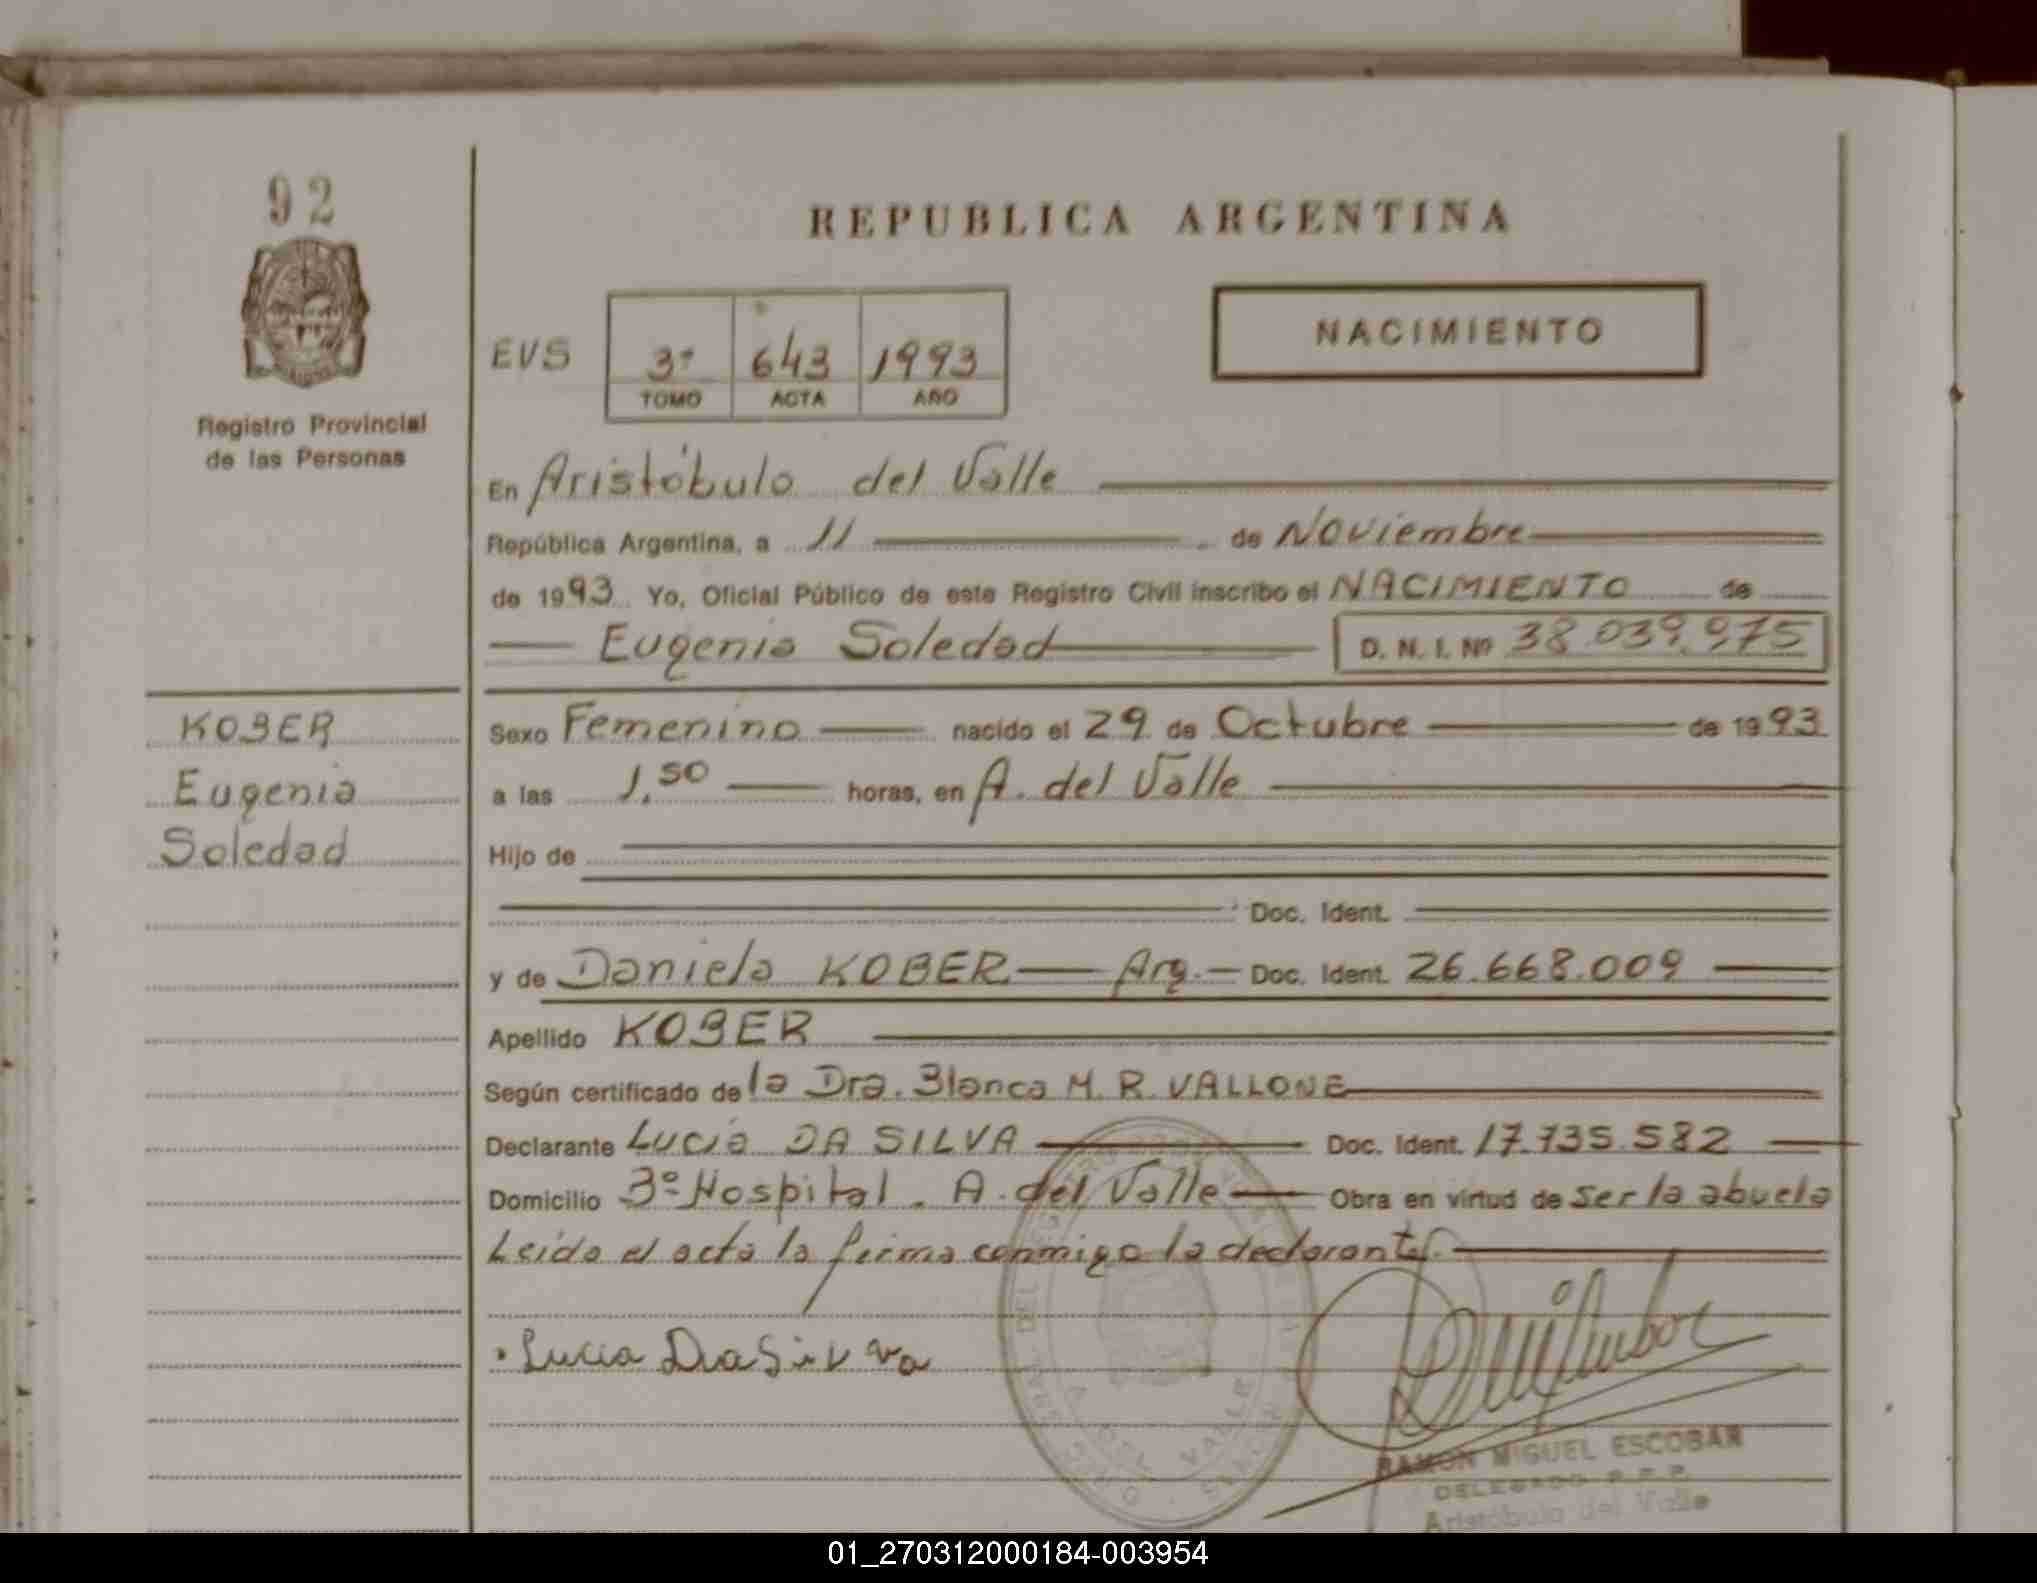 92
REPUBLICA ARGENTINA
NACIMIENTO
EVS
3º 643 1993
TOMO ACTA AÑO
Registro Provincial
de las Personas
En Aristóbulo del Valle
República Argentina, a 11 de Noviembre
de 1993 Yo, Oficial Público de este Registro Civil inscribo el NACIMIENTO de
Eugenia Soledad D. N. I. Nº 38.039.975
KOBER
Eugenia
Soledad
Sexo Femenino nacido el 29 de Octubre de 1993
a las 1,50 horas, en A. del Valle
Hijo de
Doc. Ident.
y de Daniela KOBER Arg. Doc. Ident. 26.668.009
Apellido KOBER
Según certificado de la Dra. Blanca M. R. VALLONE
Declarante Lucia DA SILVA Doc. Ident. 17.735.582
Domicilio 3º Hospital. A. del Valle Obra en virtud de ser la abuela
Leida el acta la firma conmigo la declarante.
Lucia Da Silva
RAMON MIGUEL ESCOBAR
DELEGADO R.P.P.
Aristóbulo del Valle
A. DEL VALLE
01_270312000184-003954